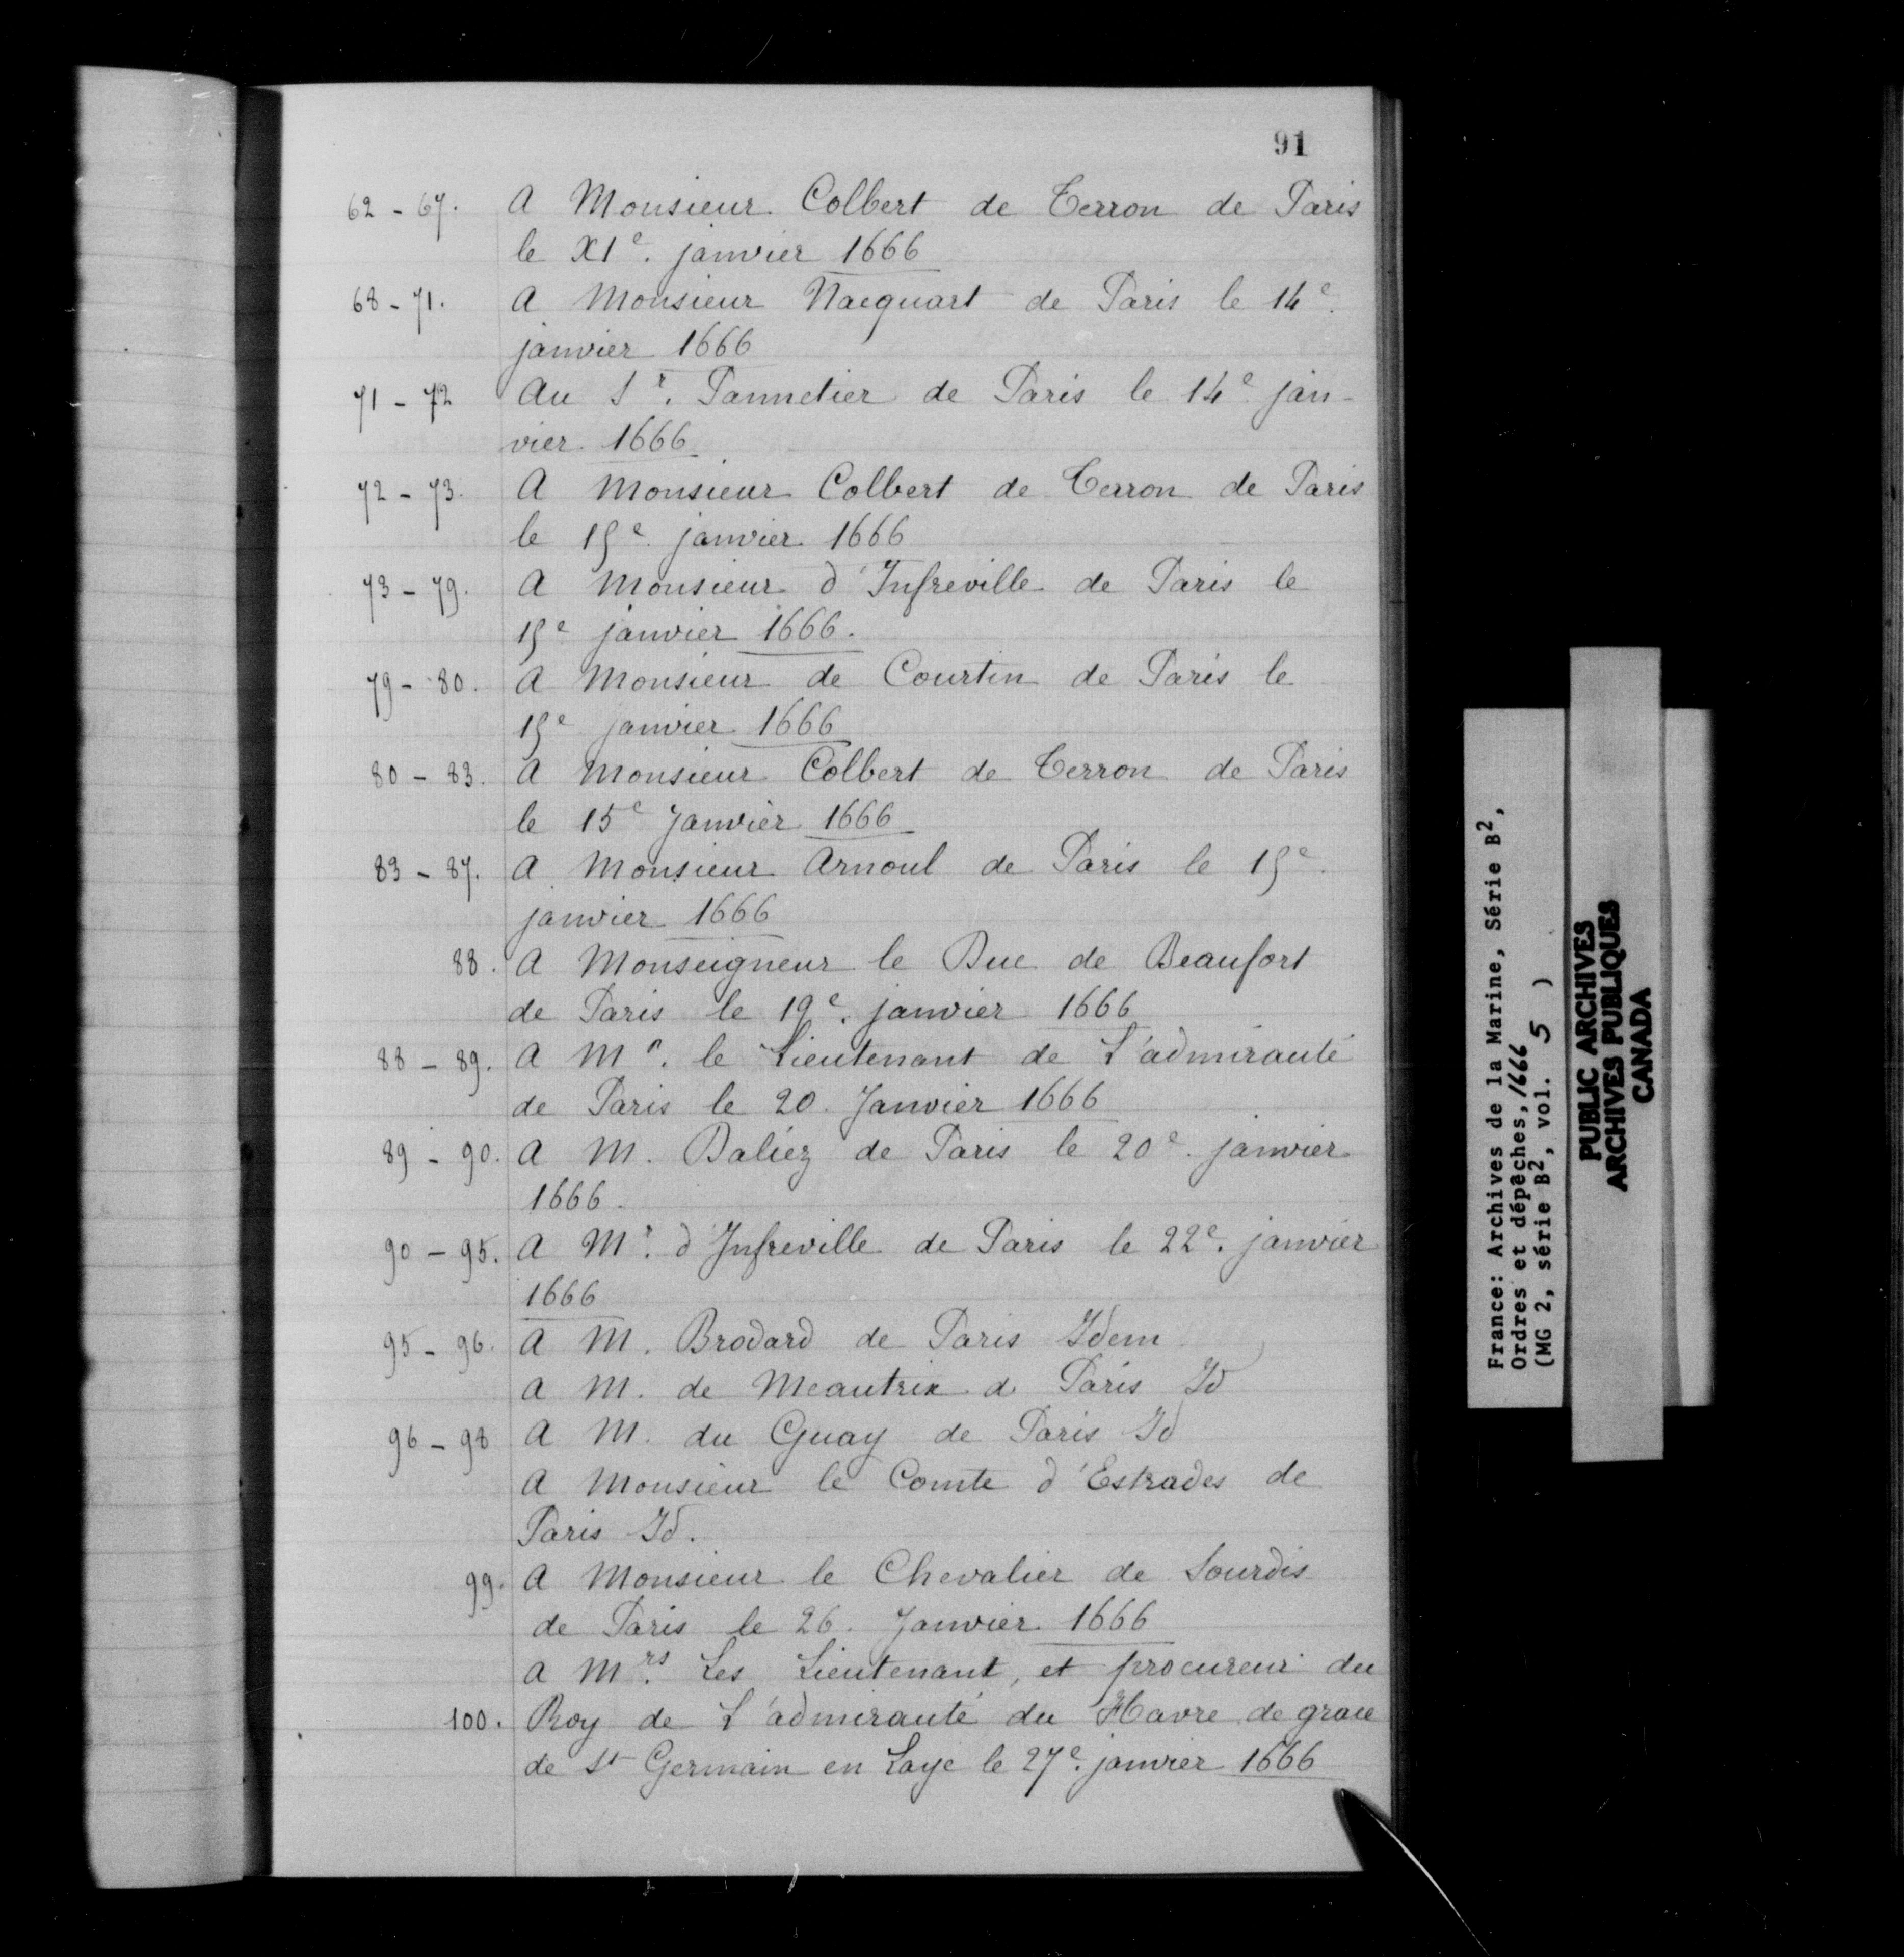 91
62 - 67. A Monsieur Colbert de Terron de Paris
le XIe. janvier 1666
68 - 71. A Monsieur Nacquart de Paris le 14e.
janvier 1666
71 - 72 Au Sr. Pannetier de Paris le 14e jan-
vier 1666
72 - 73. A Monsieur Colbert de Terron de Paris
le 15e janvier 1666
73 - 79. A Monsieur d'Infreville de Paris le
15e janvier 1666.
79 - 80. A Monsieur de Courtin de Paris le
15e janvier 1666
80 - 83. A Monsieur Colbert de Terron de Paris
le 15e Janvier 1666
83 - 87. A Monsieur Arnoul de Paris le 15e
janvier 1666
88. A Monseigneur le Duc de Beaufort
de Paris le 19e. janvier 1666
88 - 89. A Mr. le Lieutenant de L'admirauté
de Paris le 20. Janvier 1666
89 - 90. A M. Daliez de Paris le 20e. janvier
1666.
90 - 95. A Mr. d'Infreville de Paris le 22e. janvier
1666
95 - 96. A M. Brodard de Paris Idem
A M. de Meautrix d. Paris Id
96 - 98 A M. du Guay de Paris Id
A Monsieur le Comte d'Estrades de
Paris Id.
99. A Monsieur le Chevalier de Sourdis
de Paris le 26. Janvier 1666
A Mrs. Les Lieutenant, et procureur du
100. Roy de L'admirauté du Havre de grace
de St Germain en Laye le 27e. janvier 1666
France: Archives de la Marine, Série B2,
Ordres et dépêches, 1666
(MG 2, série B2, vol. 5 )
PUBLIC ARCHIVES
ARCHIVES PUBLIQUES
CANADA